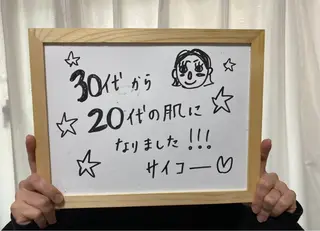 30代から
20代の肌に
なりました!!!
サイコー♡